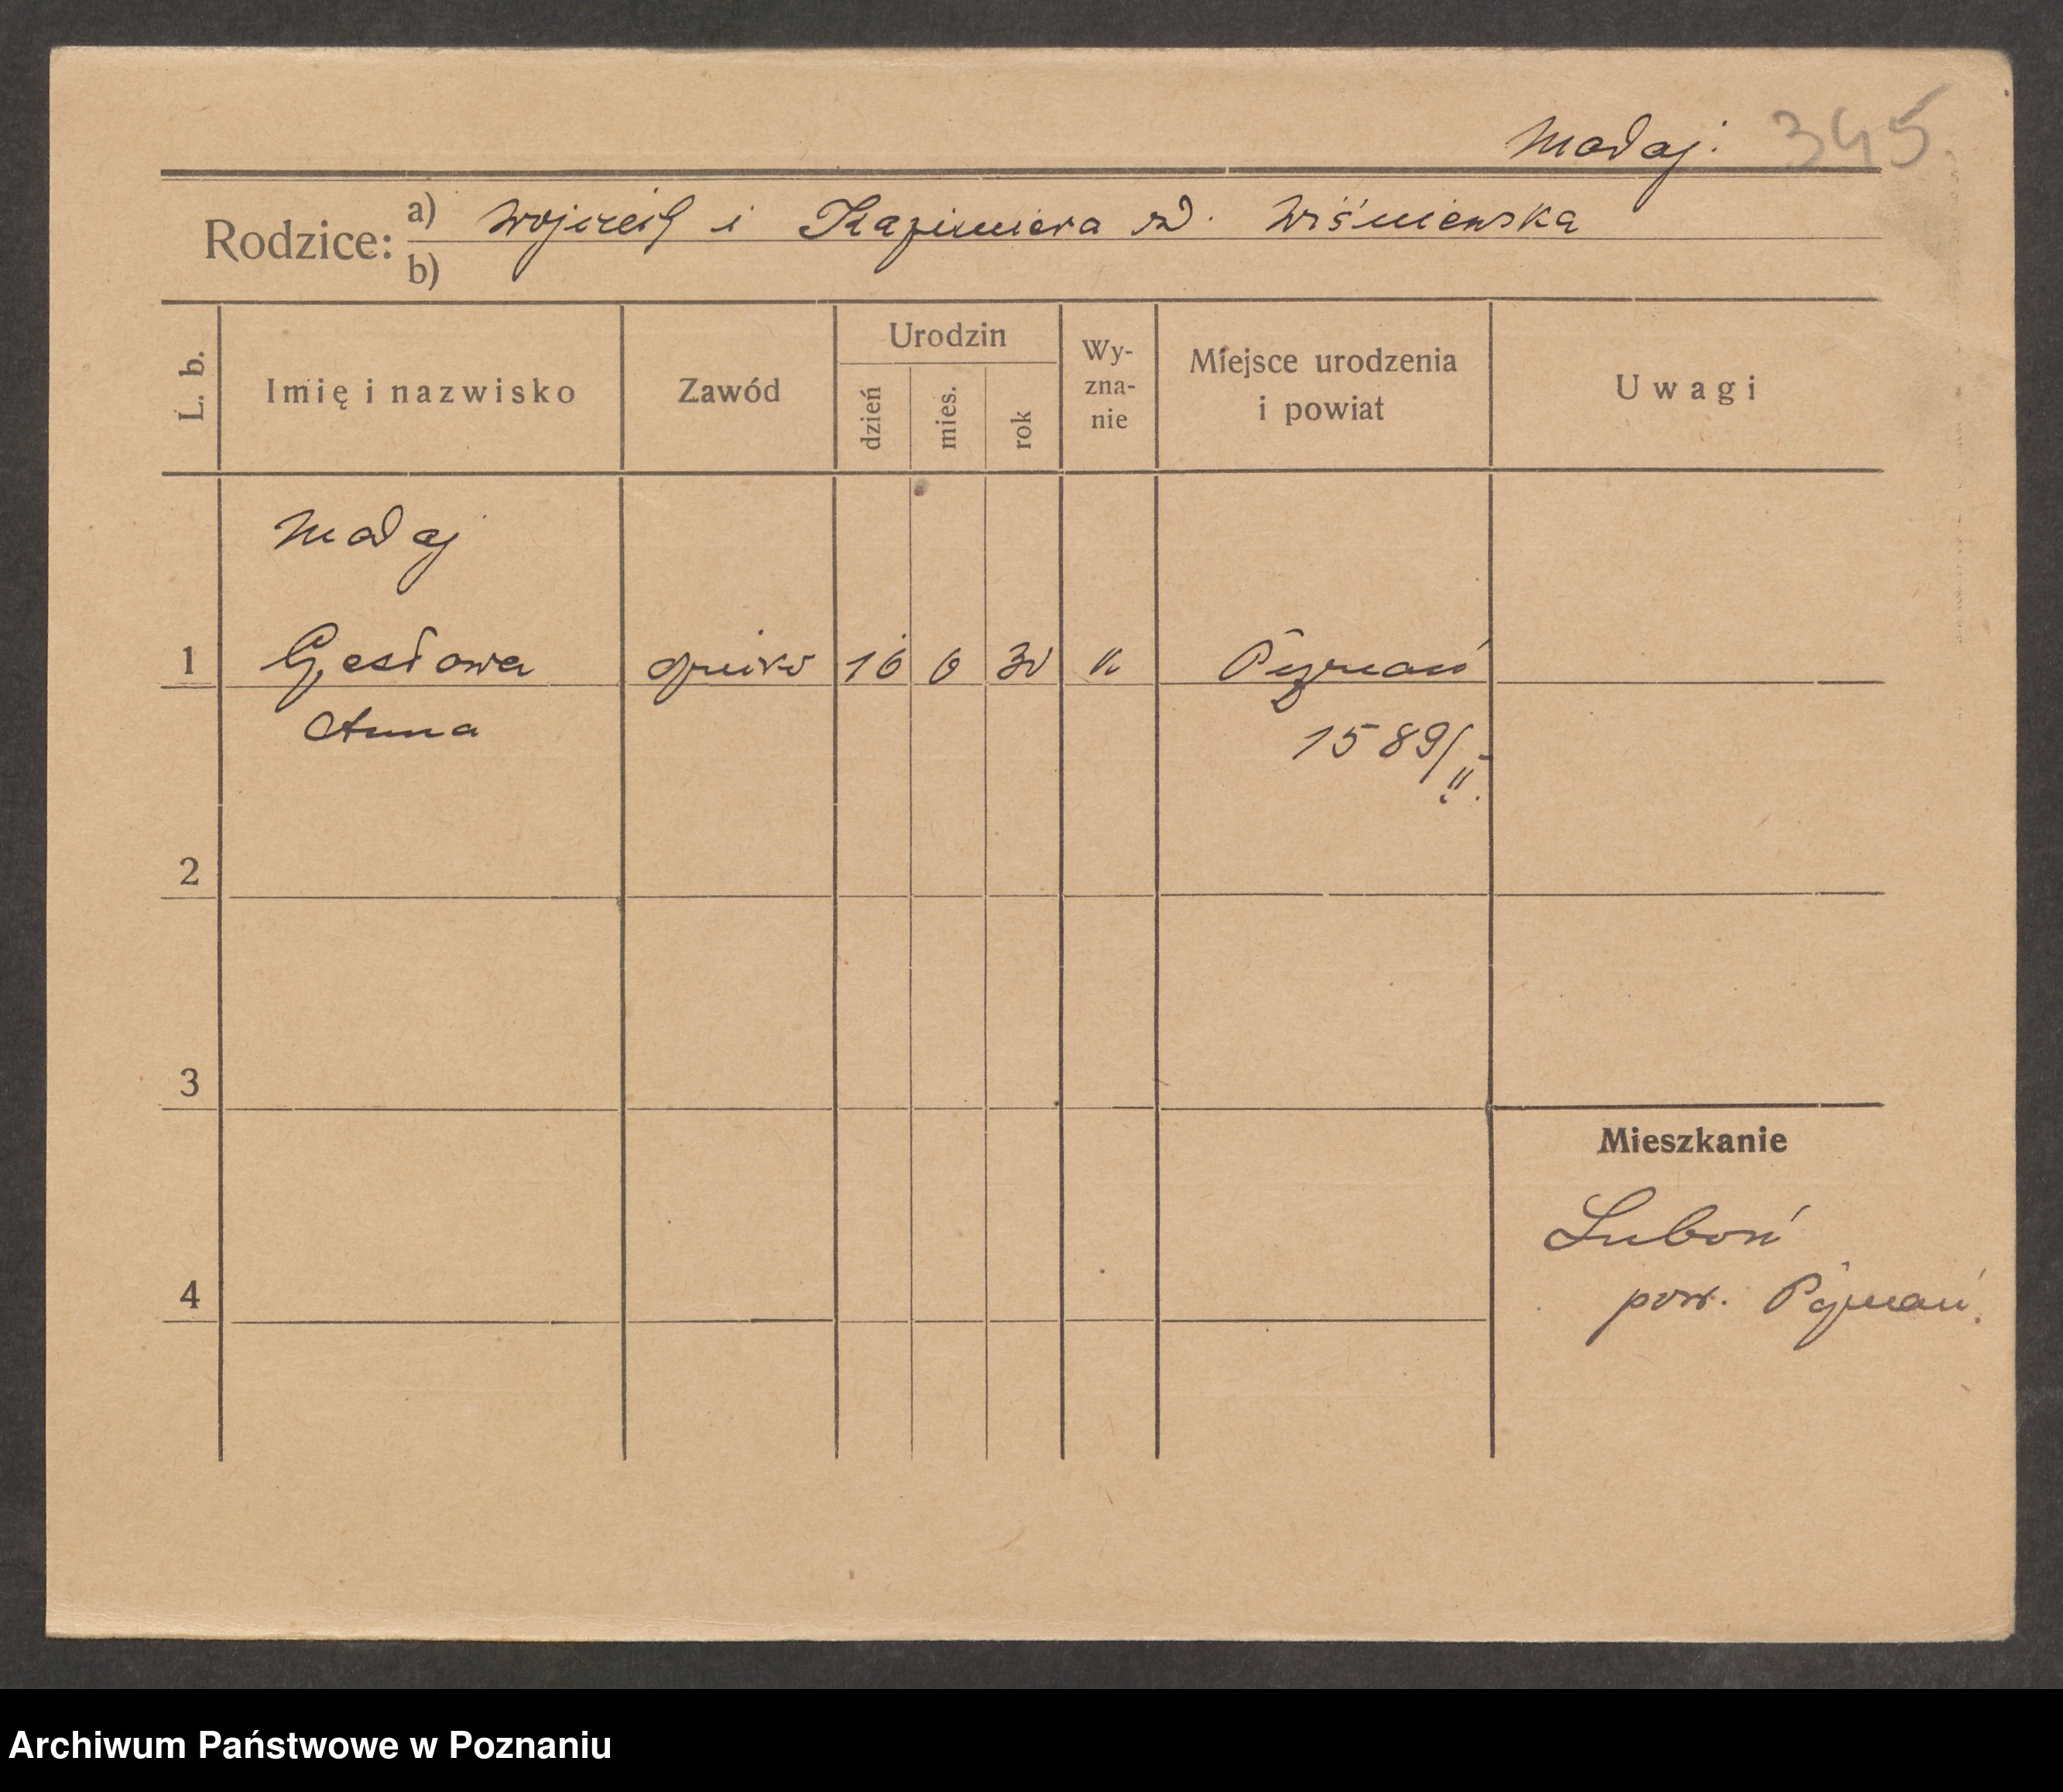 Madaj. 345
Rodzice: a) Wojciech i Kazimiera zd. Wiśniewska
b)
L. b.
Imię i nazwisko
Zawód
Urodzin
dzień
mies.
rok
Wy-
zna-
nie
Miejsce urodzenia
i powiat
Uwagi
Madaj
1
6 30 k Poznań
Anna
1589/II.
2
3
Mieszkanie
Luboń
4
pow. Poznań.
Archiwum Państwowe w Poznaniu